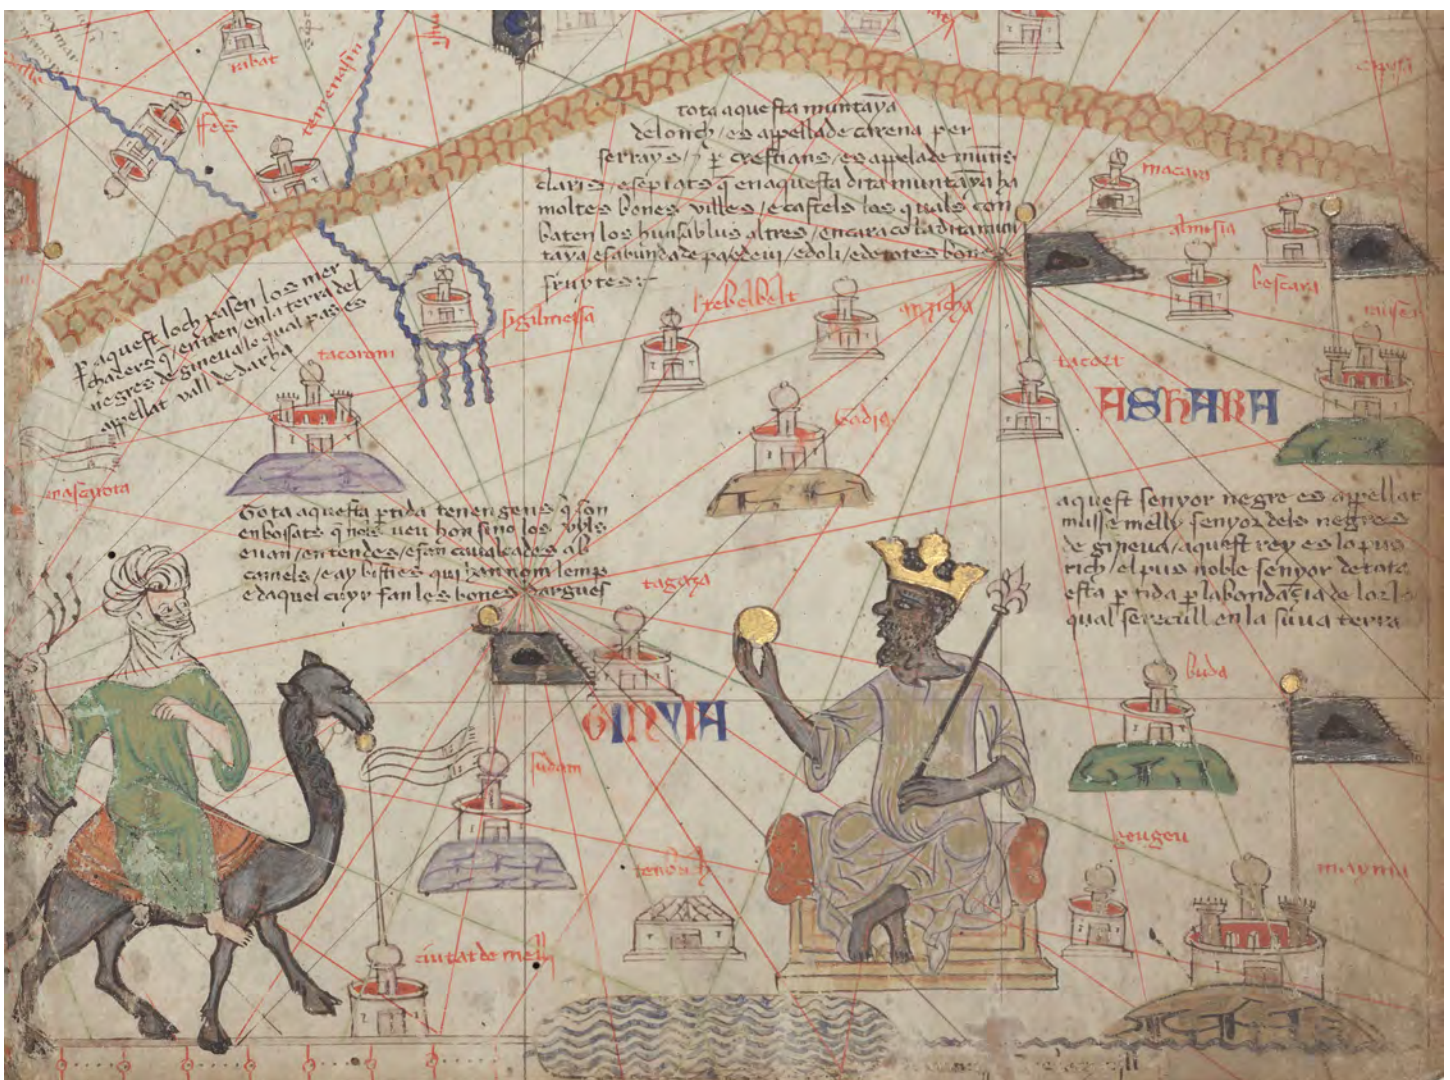 rabat
fes
tota aquesta muntaya
de lonch / es appellade carena per
serrayns / crestians / es appelade munts
claris / e sepiats q en aquesta dita muntaya ha
moltes bones villes / e castels los quals con
baten los huns ab lus altres / encara co la dita mun
taya es abunda de pa e de vi / e doli / e de totes bones
fruytes :-
macara
almisia
bescara
P aquest loch pasen los mer
chaders q / entren / en la terra del
negres de gineua lo qual pas es
appellat vall de darha
sigilmessa
tebelbelt
anzicha
tacort
tacorom
badis
ASHARA
Tota aquesta ptida tenen gens q son
enbosats q nols veu hon sino los uyls
e van / en tendes / e fan cavalcades ab
camels / e ay bisties qui han nom lemp
e daquel cuyr fan les bones dargues
aquest senyor negre es appellat
musse melly senyor dels negres
de gineua / aquest rey es lo pus
rich / el pus noble senyor de tota
esta ptida p labondacia de lor lo
qual se recull en la suua terra
tagaza
buda
GINYIA
sudam
geugeu
tenbuch
mayma
ciutat de melli